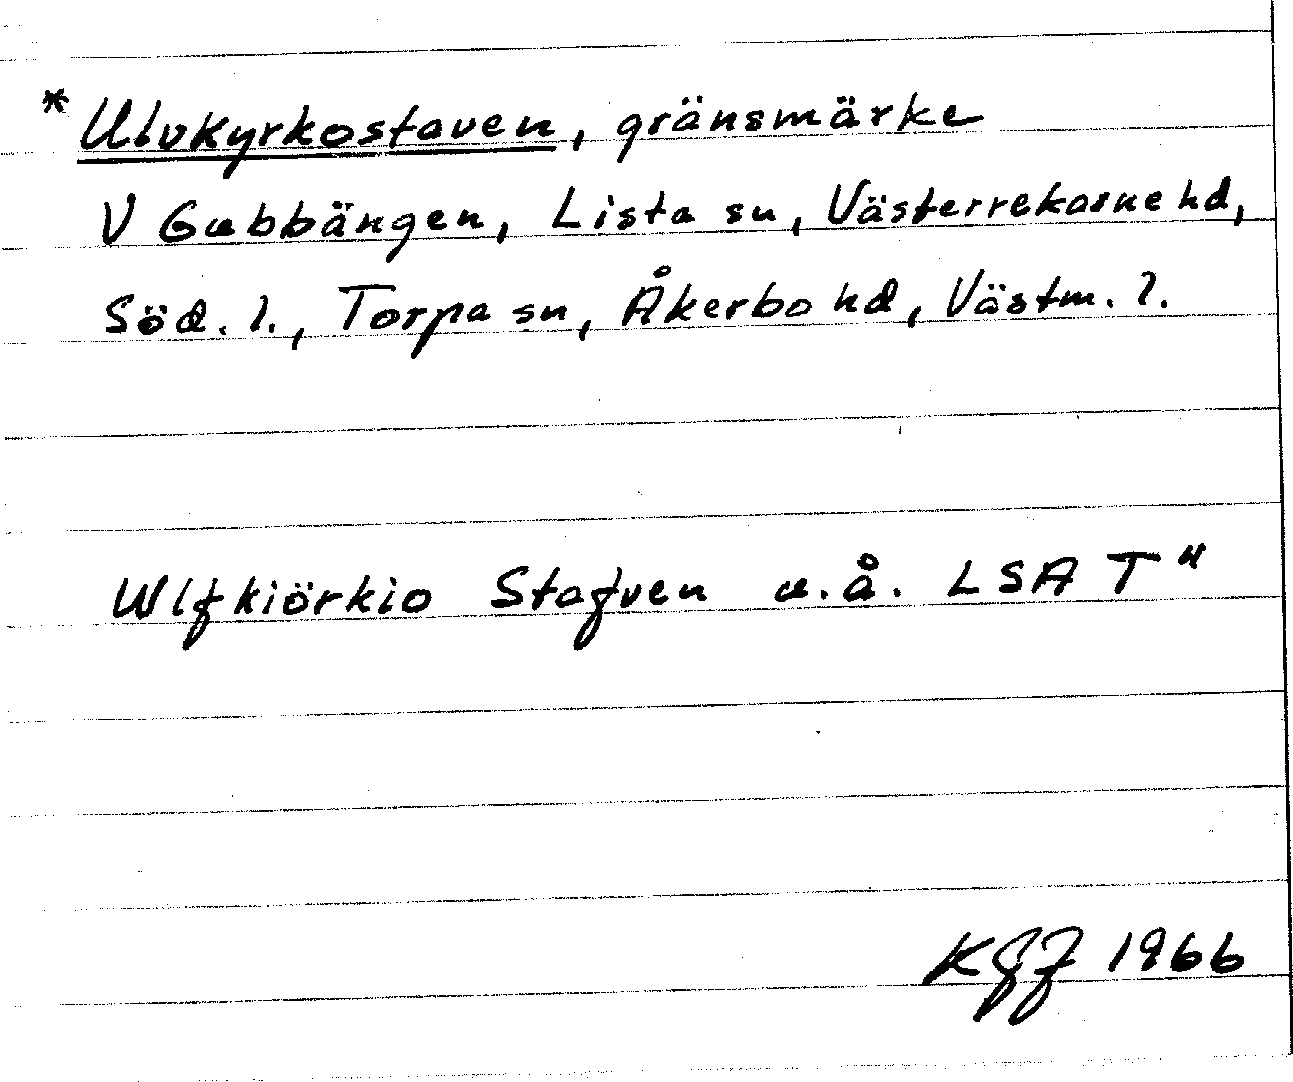 * Ulvkyrkostaven, gränsmärke
V Gubbängen, Lista sn, Västerrekarne hd,
Söd. l., Torpa sn, Åkerbo hd, Västm. l.
Wlfkiörkio Stafven u.å. LSA T"
1966